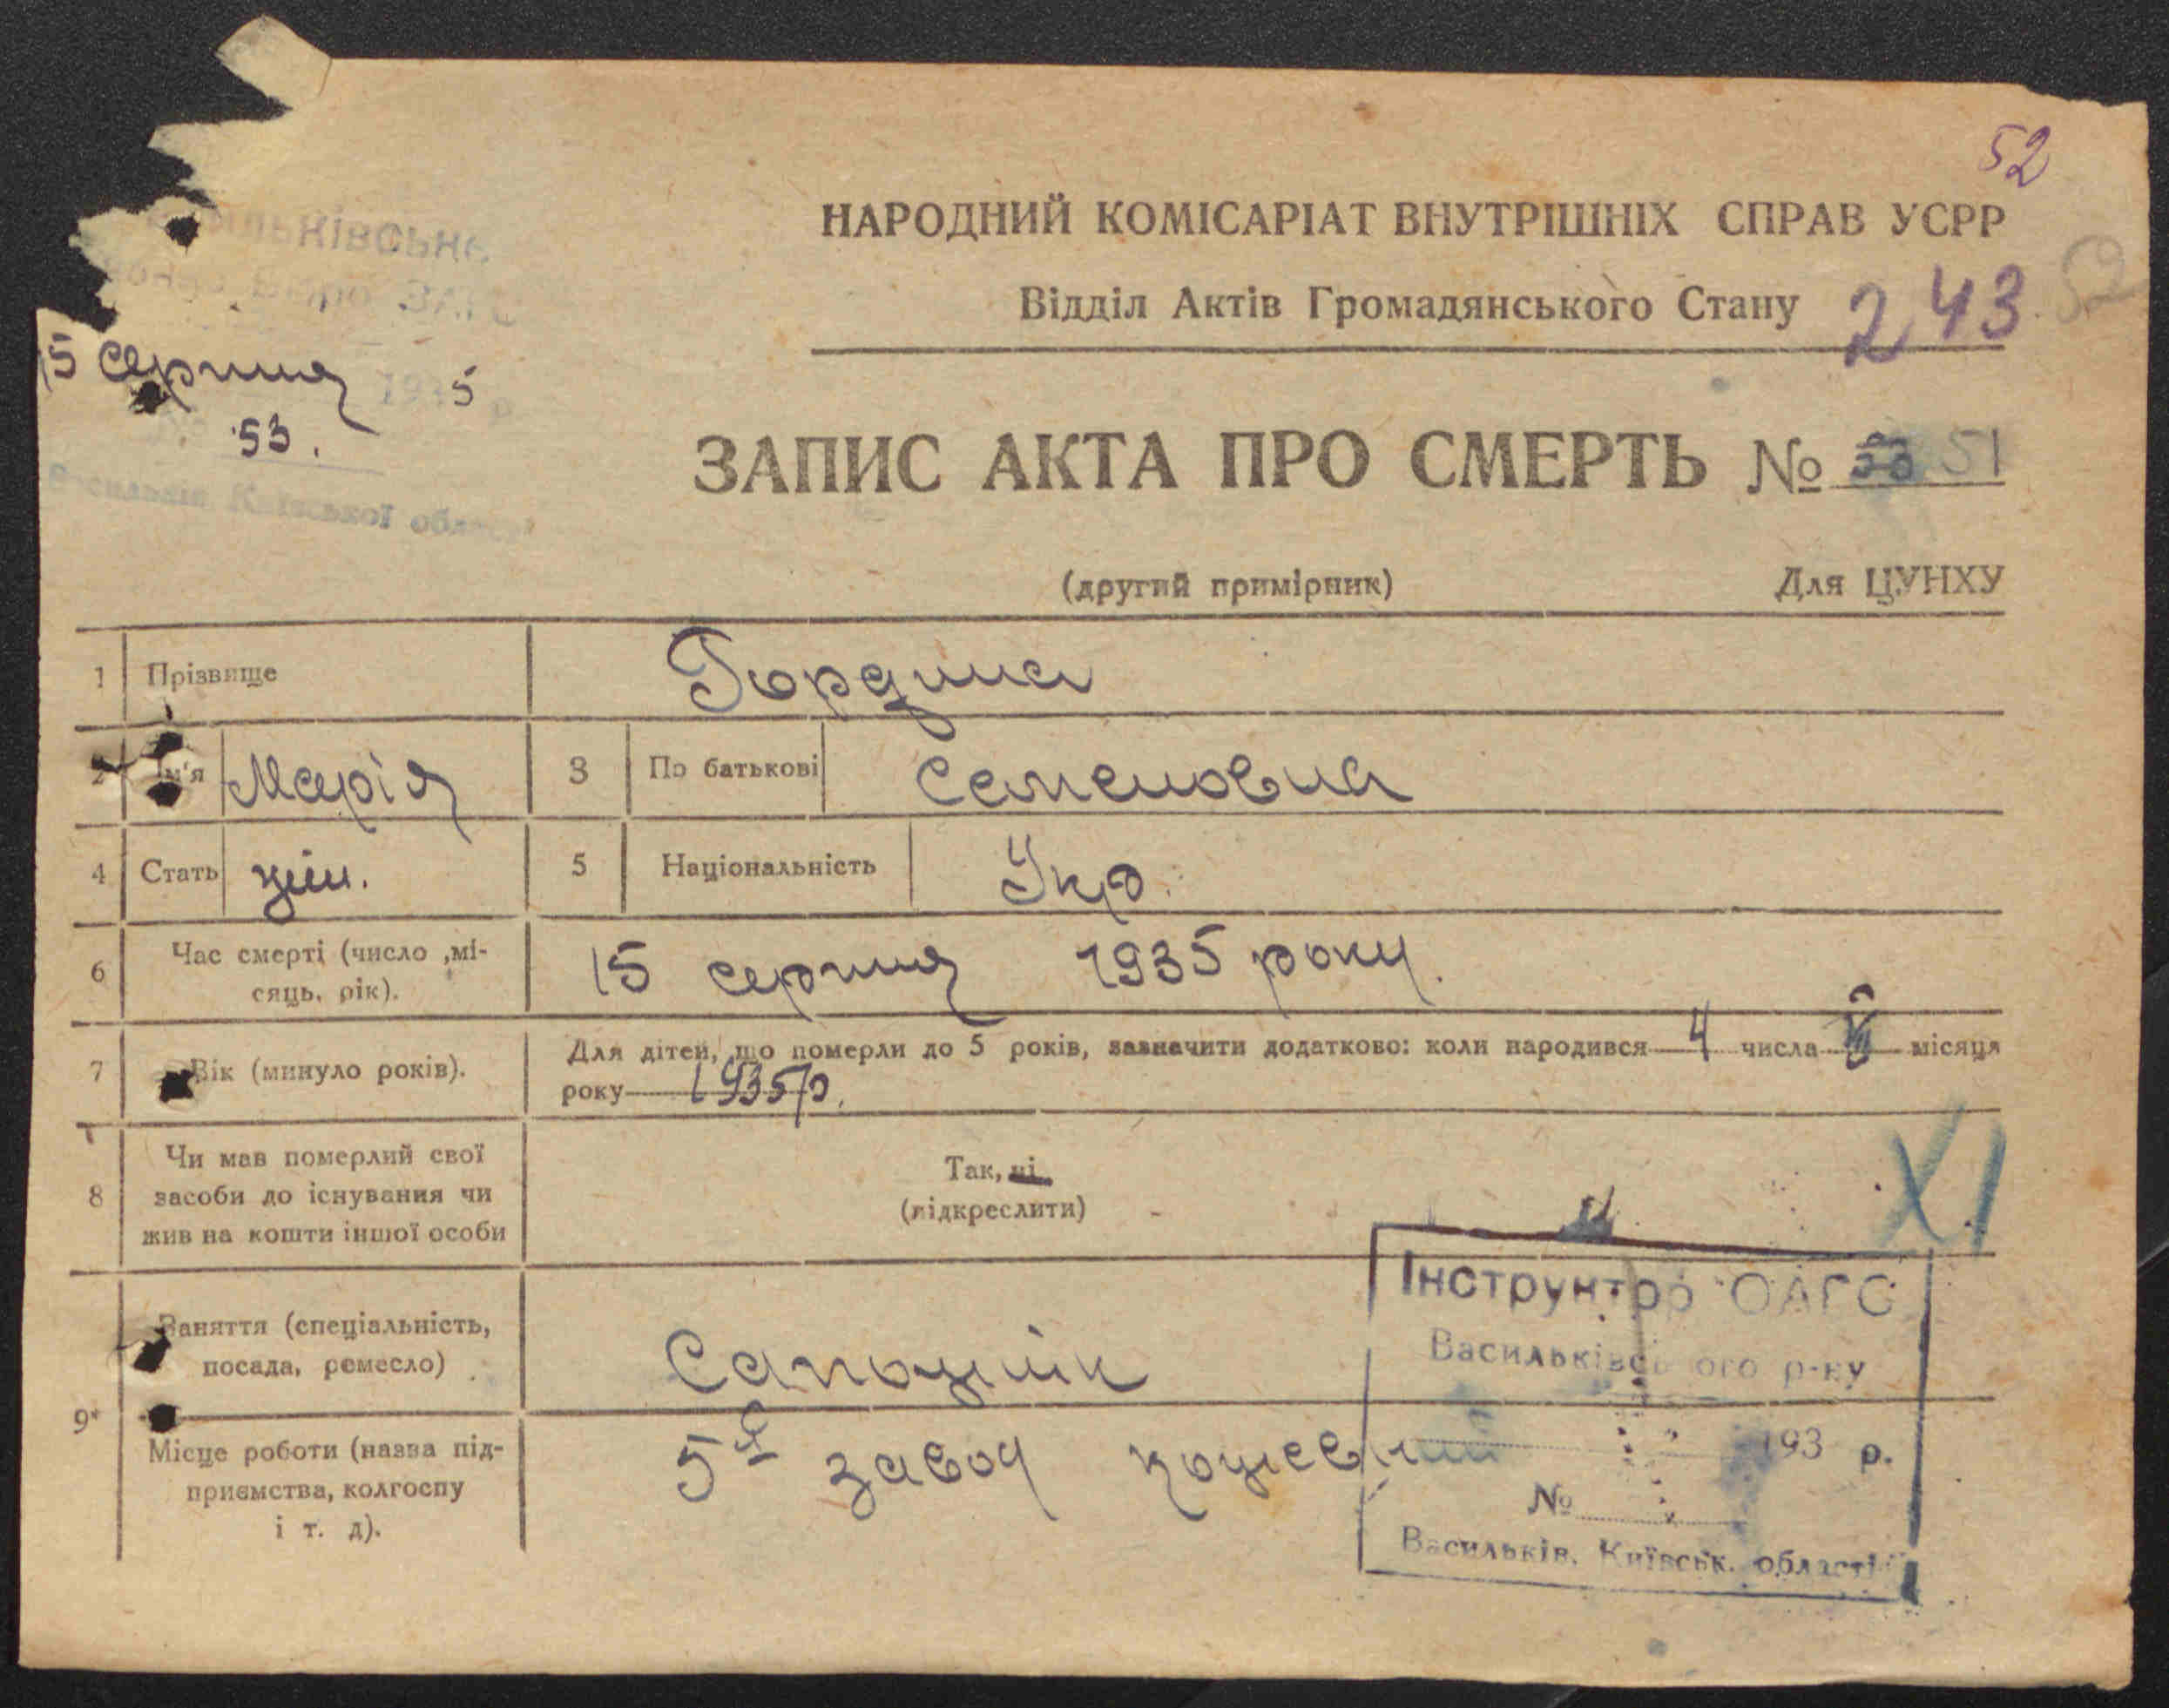 52
НАРОДНИЙ КОМІСАРІАТ ВНУТРІШНІХ СПРАВ УСРР
Відділ Актів Громадянського Стану
243 52
15 серпня 1935 р.
53.
Васильків Київської області
ЗАПИС АКТА ПРО СМЕРТЬ № 53 51
(другий примірник) Для ЦУНХУ
1 Прізвище Гордина
2 Ім'я Марія 3 По батькові Семеновна
4 Стать жін. 5 Національність Укр.
6 Час смерті (число ,мі-
сяць, рік). 15 серпня 1935 року.
7 Вік (минуло років). Для дітей, що померли до 5 років, зазначити додатково: коли народився 4 числа місяця
року 1935 р.
8 Чи мав померлий свої
засоби до існування чи
жив на кошти іншої особи
Так, ні
(підкреслити)
XI
9 Заняття (спеціальність,
посада, ремесло) Сапожнік
Місце роботи (назва під-
приємства, колгоспу
і т. д). 5й завод кожевний
Інструктор ОАГС
Васильківського р-ну
193 р.
№
Васильків, Київськ. області